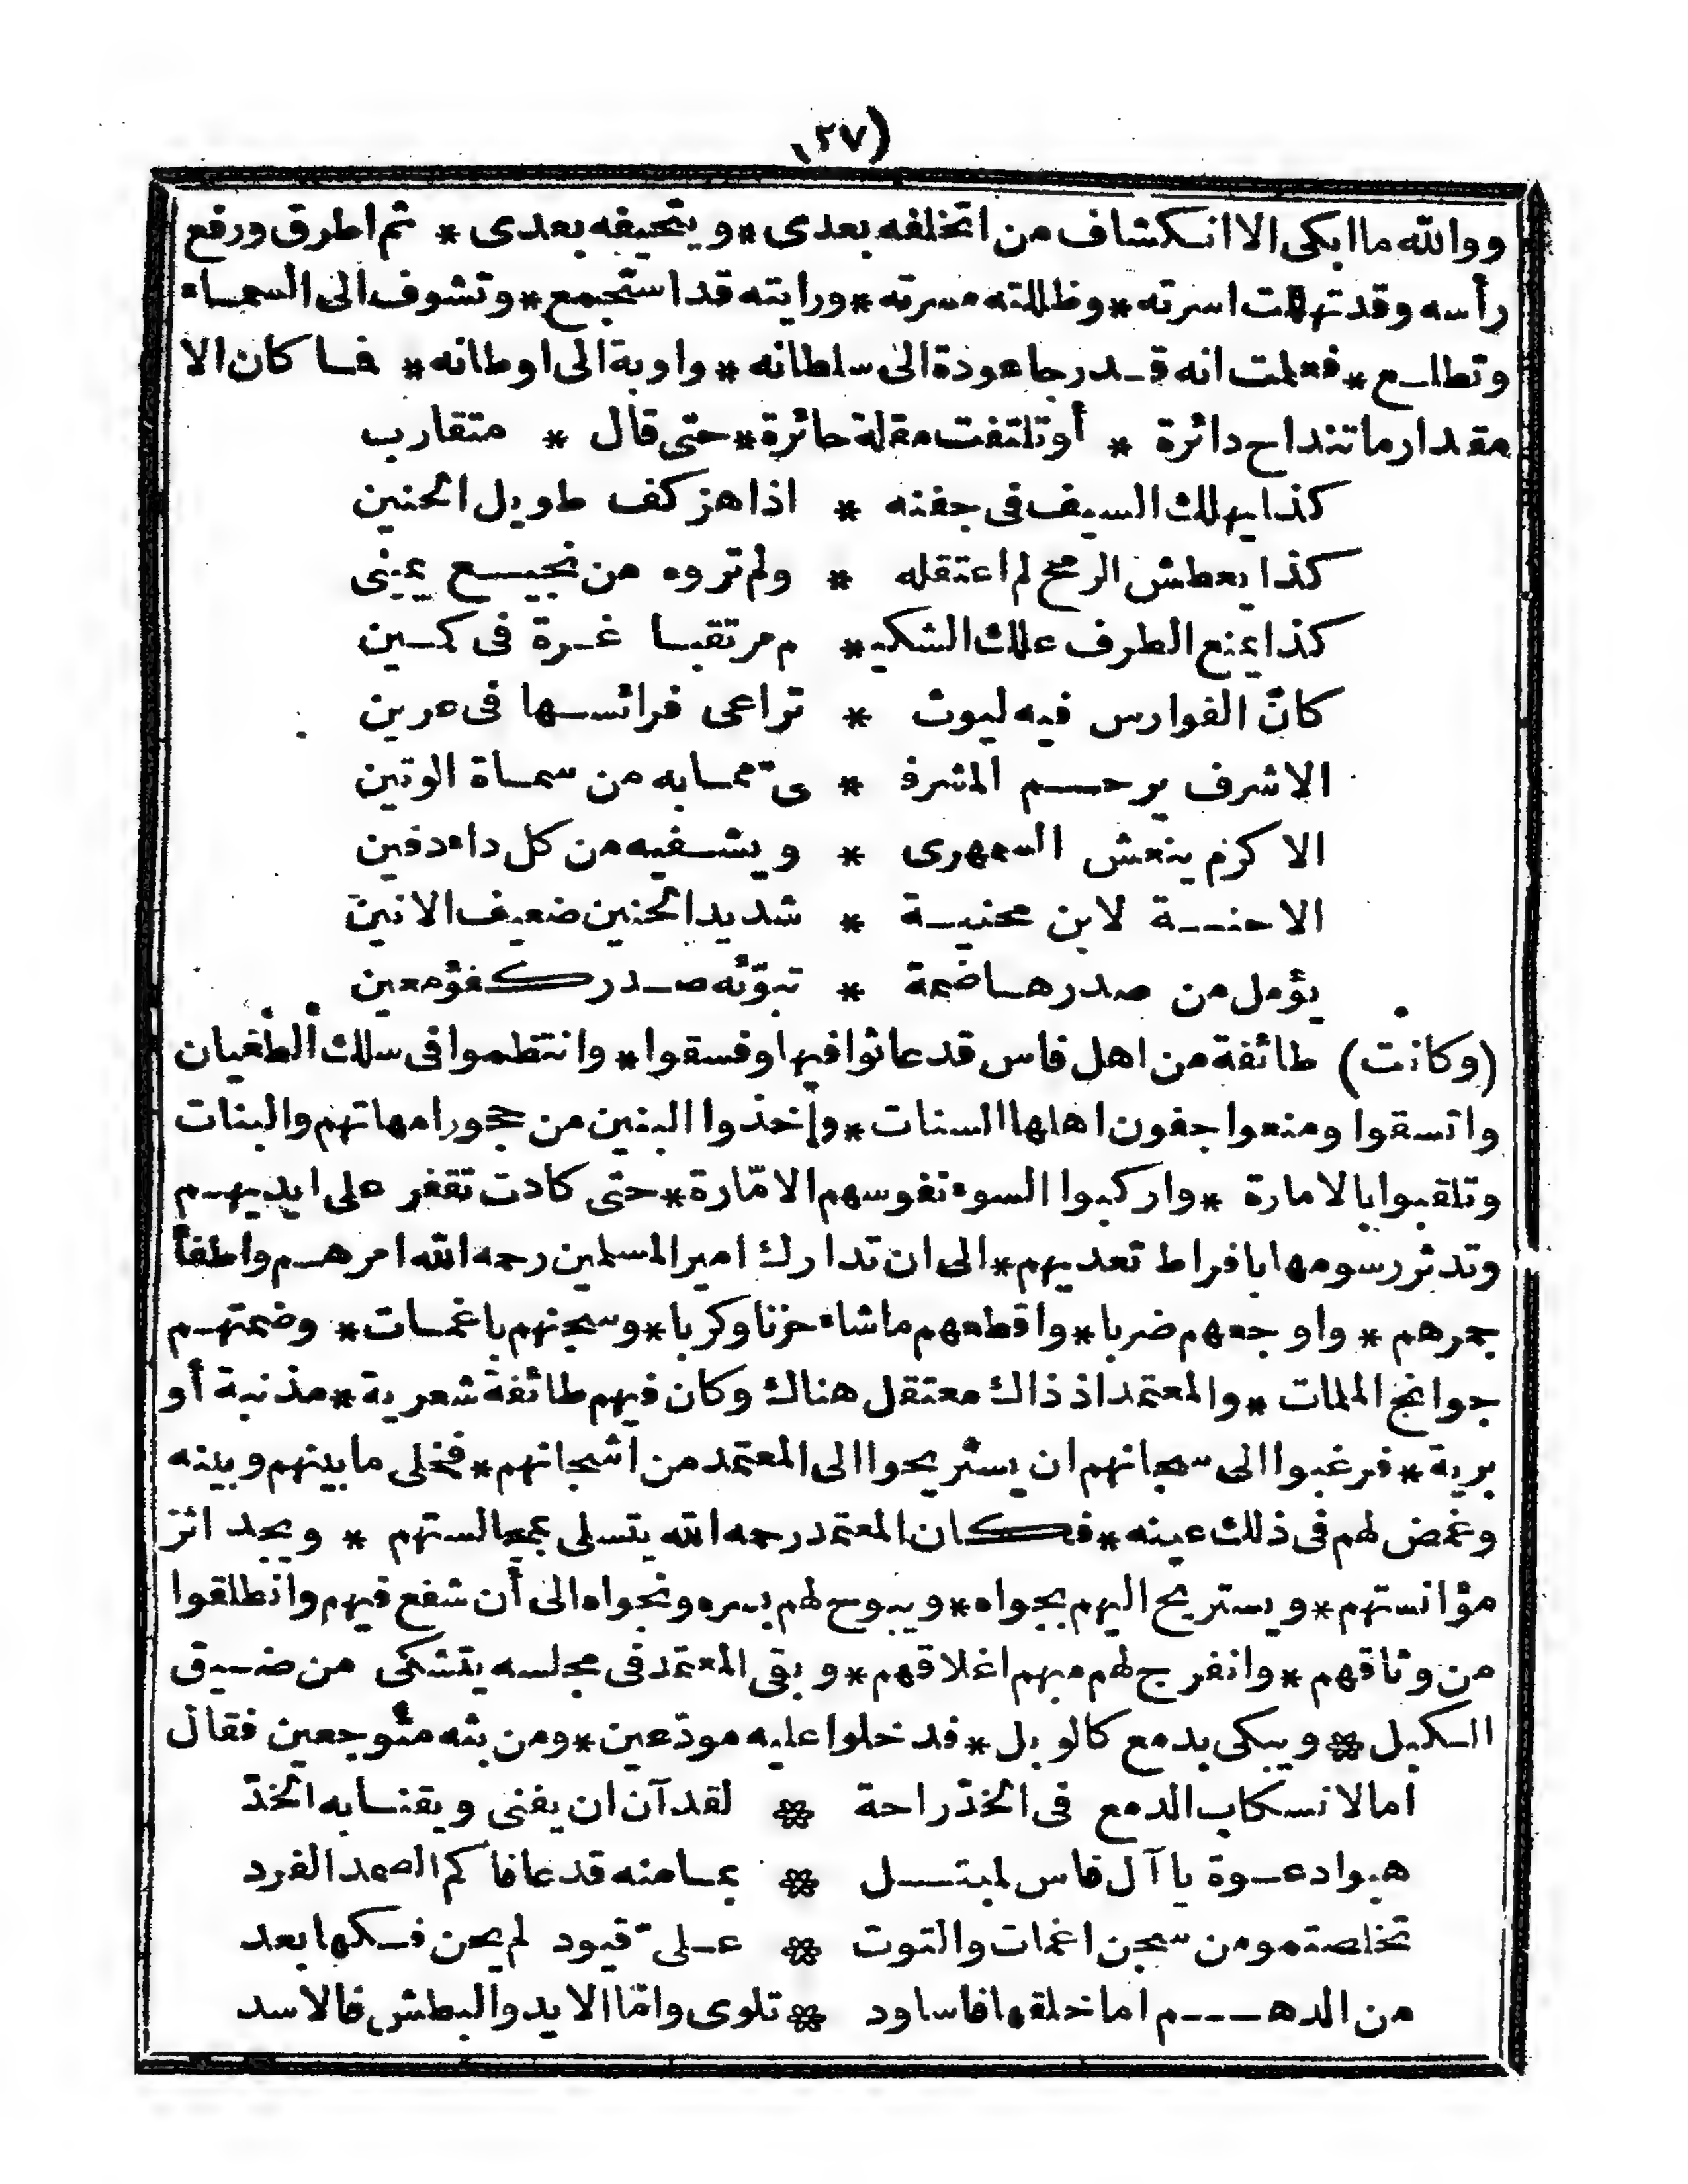 (٢٧)
ووالله ما ابكى الا انكشاف من اتخلفه بعدى * ويتحيفه بعدى * ثم اطرق ورفع
رأسه وقد تهللت اسرته * وظللته مسرته * ورايته قد استجمع * وتشوف الى السماء
وتطلع * فعلمت انه قد رجا عودة الى سلطانه * واوبة الى اوطانه * فما كان الا
مقدار ما تنداح دائرة * أو تلتفت مقلة حائرة * حتى قال * متقارب
كذا يهلك السيف فى جفنه * اذا هز كف طويل الحنين
كذا يعطش الرمح لم اعتقله * ولم تروه من نجيع يمينى
كذا يمنع الطرف علك الشكيـ * م مرتقبا غرة فى كمين
كانّ الفوارس فيه ليوث * تراعى فرائسها فى عرين
الا شرف يرحم المشرفـ * ىّ مما به من سماة الوتين
الا كرم ينعش السمهرى * ويشفيه من كل داء دفين
الا حنة لابن محنية * شديد الحنين ضعيف الانين
يؤمل من صدرها ضمة * تبوّئه صدر كفؤ معين
(وكانت) طائفة من اهل فاس قد عاثوا فيها وفسقوا * وانتظموا فى سلك الطغيان
واتسقوا ومنعوا جفون اهلها السنات * وأخذوا البنين من حجور امهاتهم والبنات
وتلقبوا بالامارة * واركبوا السوء نفوسهم الامّارة * حتى كادت تقفر على ايديهم
وتدثر رسومها بافراط تعديهم * الى ان تدارك امير المسلمين رحمه الله امرهم واطفأ
جمرهم * واوجعهم ضربا * واقطعهم ما شاء حزنا وكربا * وسجنهم باغمات * وضمتهم
جوانح الملمات * والمعتمد اذ ذاك معتقل هناك وكان فيهم طائفة شعرية * مذنبة أو
برية * فرغبوا الى سجانهم ان يستريحوا الى المعتمد من اشجانهم * فخلى ما بينهم وبينه
وغمض لهم فى ذلك عينه * فكان المعتمد رحمه الله يتسلى بمجالستهم * ويجد اثر
مؤانستهم * ويستريح اليهم بجواه * ويبوح لهم بسره ونجواه الى أن شفع فيهم وانطلقوا
من وثاقهم * وانفرج لهم مبهم اغلاقهم * وبقى المعتمد فى مجلسه يتشكى من ضيق
الكبل * ويبكى بدمع كالوبل * فدخلوا عليه مودّعين * ومن بثه متوجعين فقال
اما لانسكاب الدمع فى الخدّ راحة * لقد آن ان يفنى ويفنا به الخدّ
هبوا دعوة يا آل فاس لمبتل * بما منه قد عافاكم الصمد الفرد
تخلصتمو من سجن اغمات والتوت * علىّ قيود لم يحن فكها بعد
من الدهم اما خلقها فاساود * تلوى وامّا الايد والبطش فالاسد